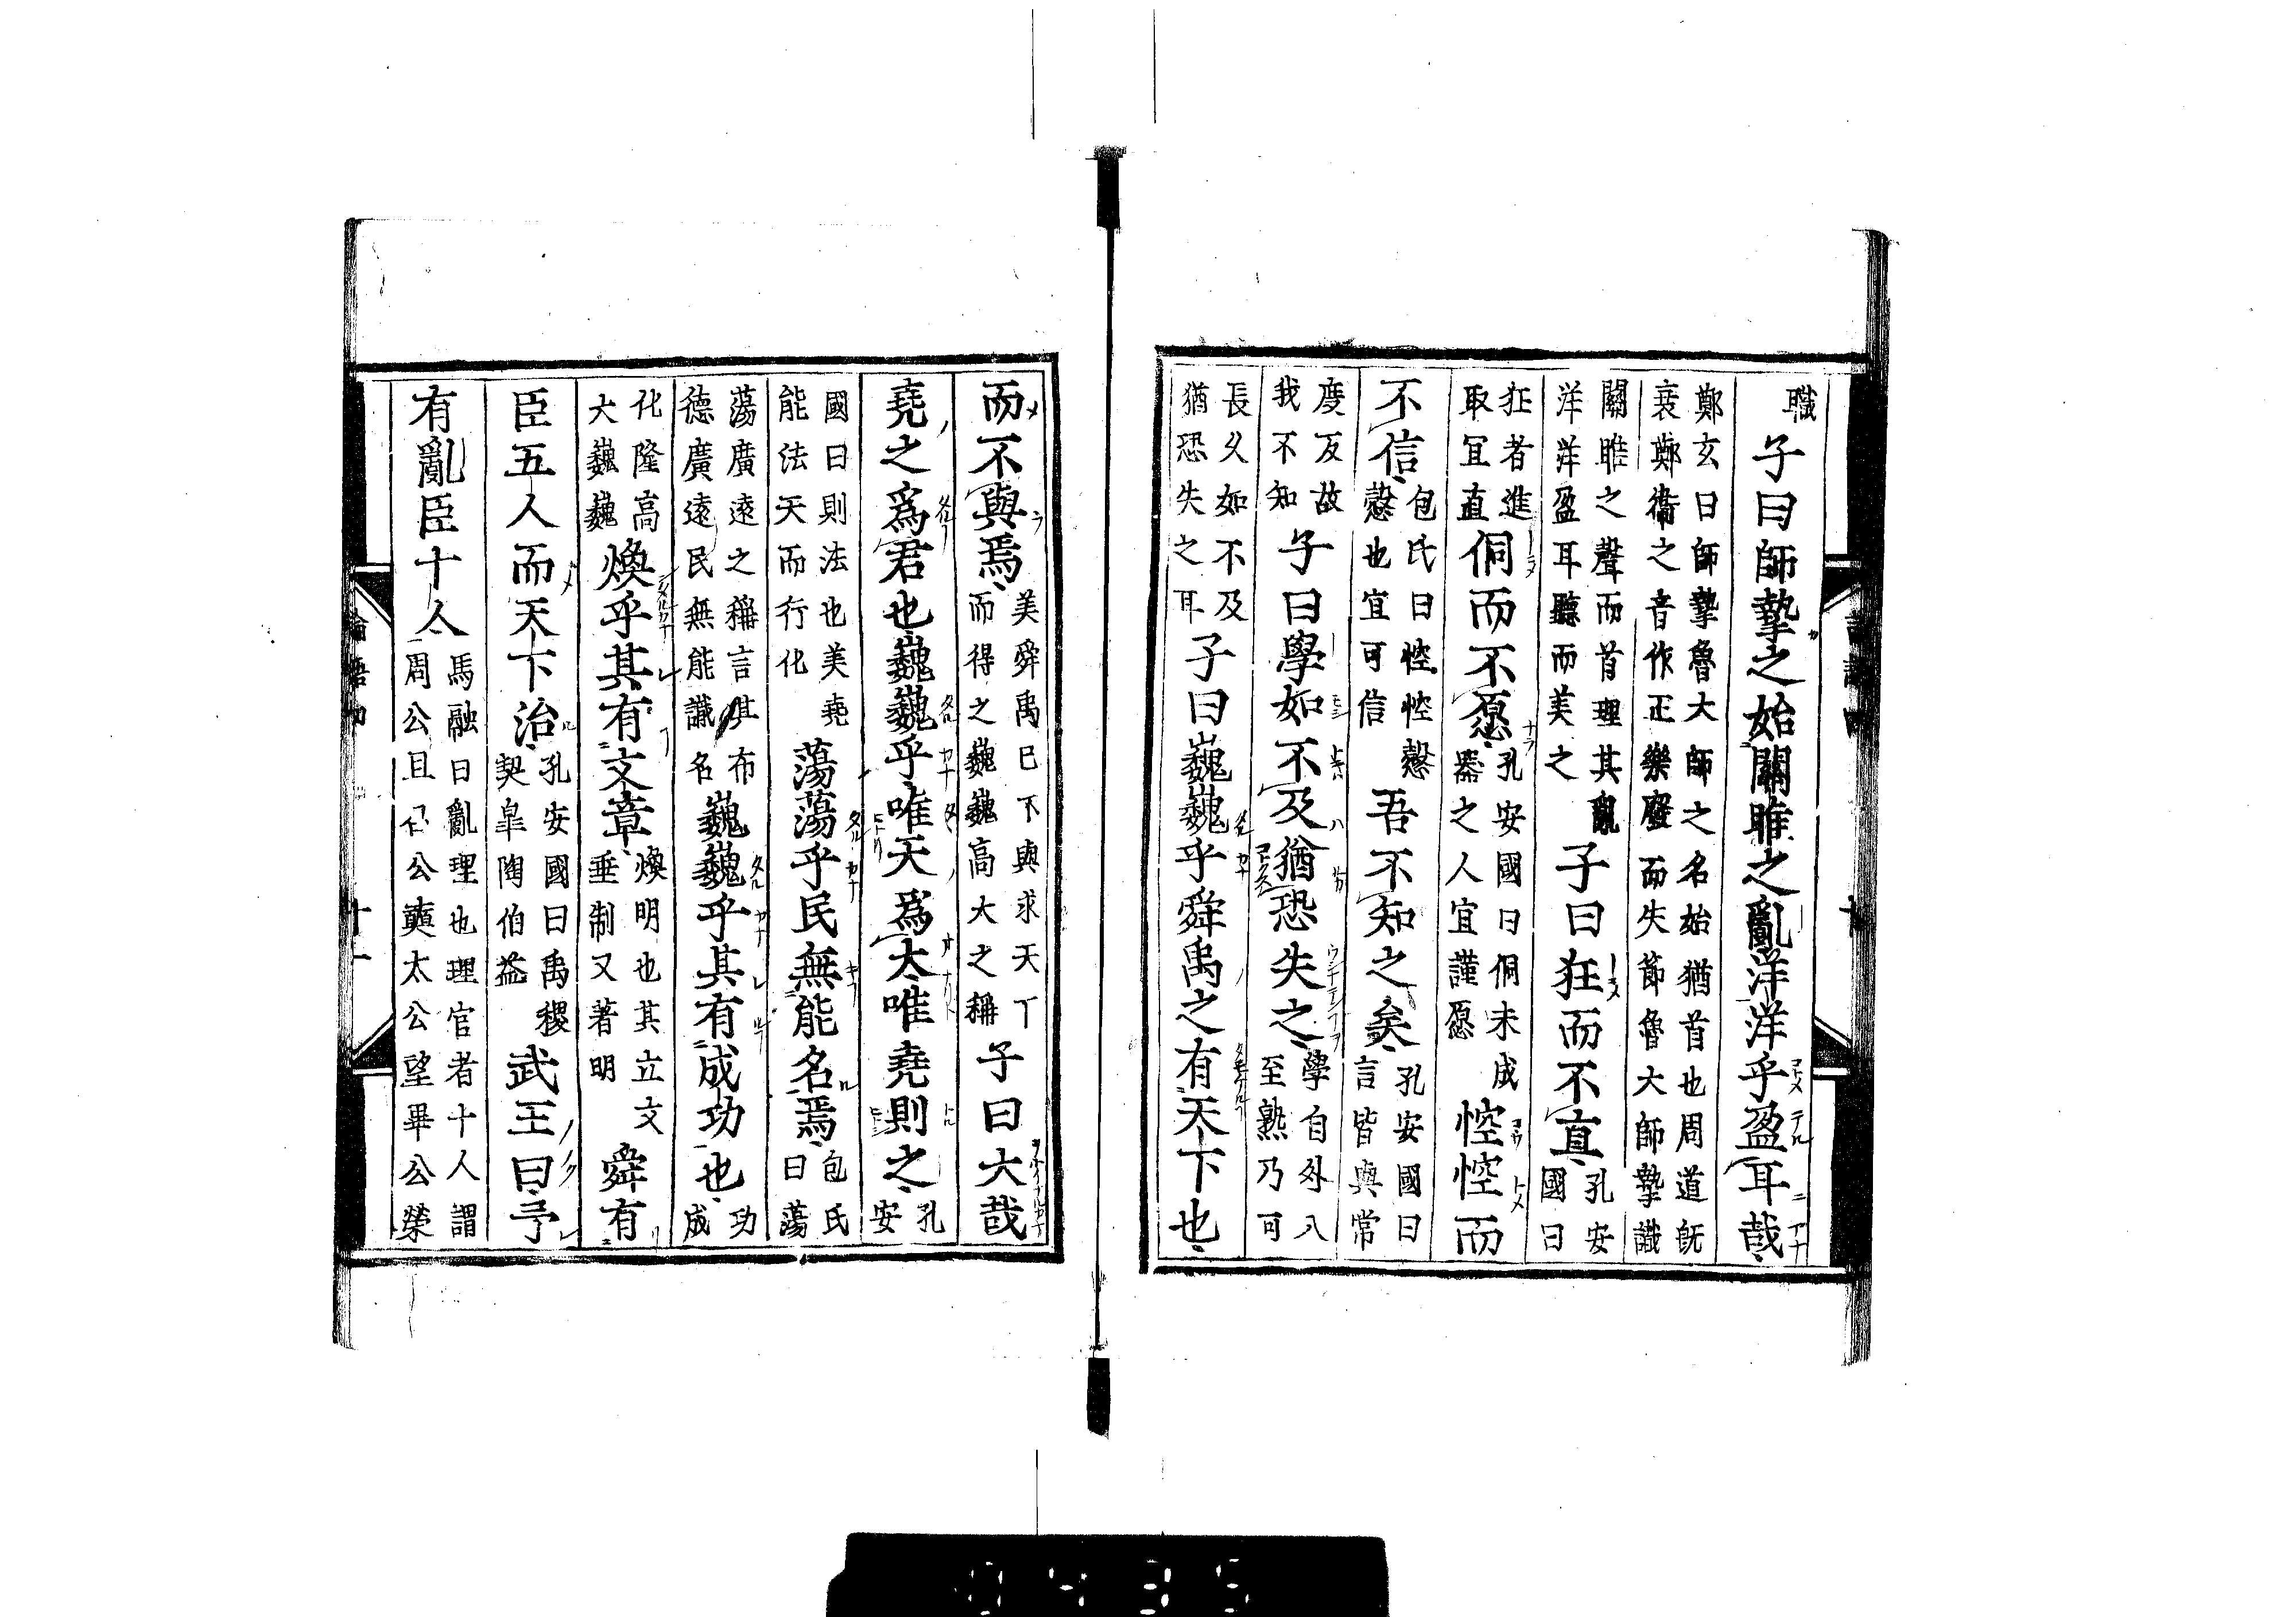 職子曰師摯之始關雎之亂洋洋乎盈耳哉
鄭玄曰師摯魯大師之名始猶首也周道既
衰鄭衛之音作正樂廢而失節魯大師摯識
關雎之聲而首理其亂
洋洋盈耳聽而美之
子曰狂而不直
孔安
國曰
狂者進
取宜直
侗而不愿
孔安國曰侗未成
器之人宜謹愿
悾悾而
不信
包氏曰悾悾愨
愨也宜可信
吾不知之矣
孔安國曰
言皆與常
度反故
我不知
子曰學如不及猶恐失之
學自外入
至熟乃可
長久如不及
猶恐失之耳
子曰巍巍乎舜禹之有天下也
而不與焉
美舜禹已不與求天下
而得之巍巍高大之稱
子曰大哉
堯之為君也巍巍乎唯天為大唯堯則之
孔
安
國曰則法也美堯
能法天而行化
蕩蕩乎民無能名焉
包氏
曰蕩
蕩廣遠之稱言其布
德廣遠民無能識名
巍巍乎其有成功也
功
成
化隆高
大巍巍
煥乎其有文章
煥明也其立文
垂制又著明
舜有
臣五人而天下治
孔安國曰禹稷
契皐陶伯益
武王曰予
有亂臣十人
馬融曰亂理也理官者十人謂
周公旦召公奭太公望畢公榮
0435